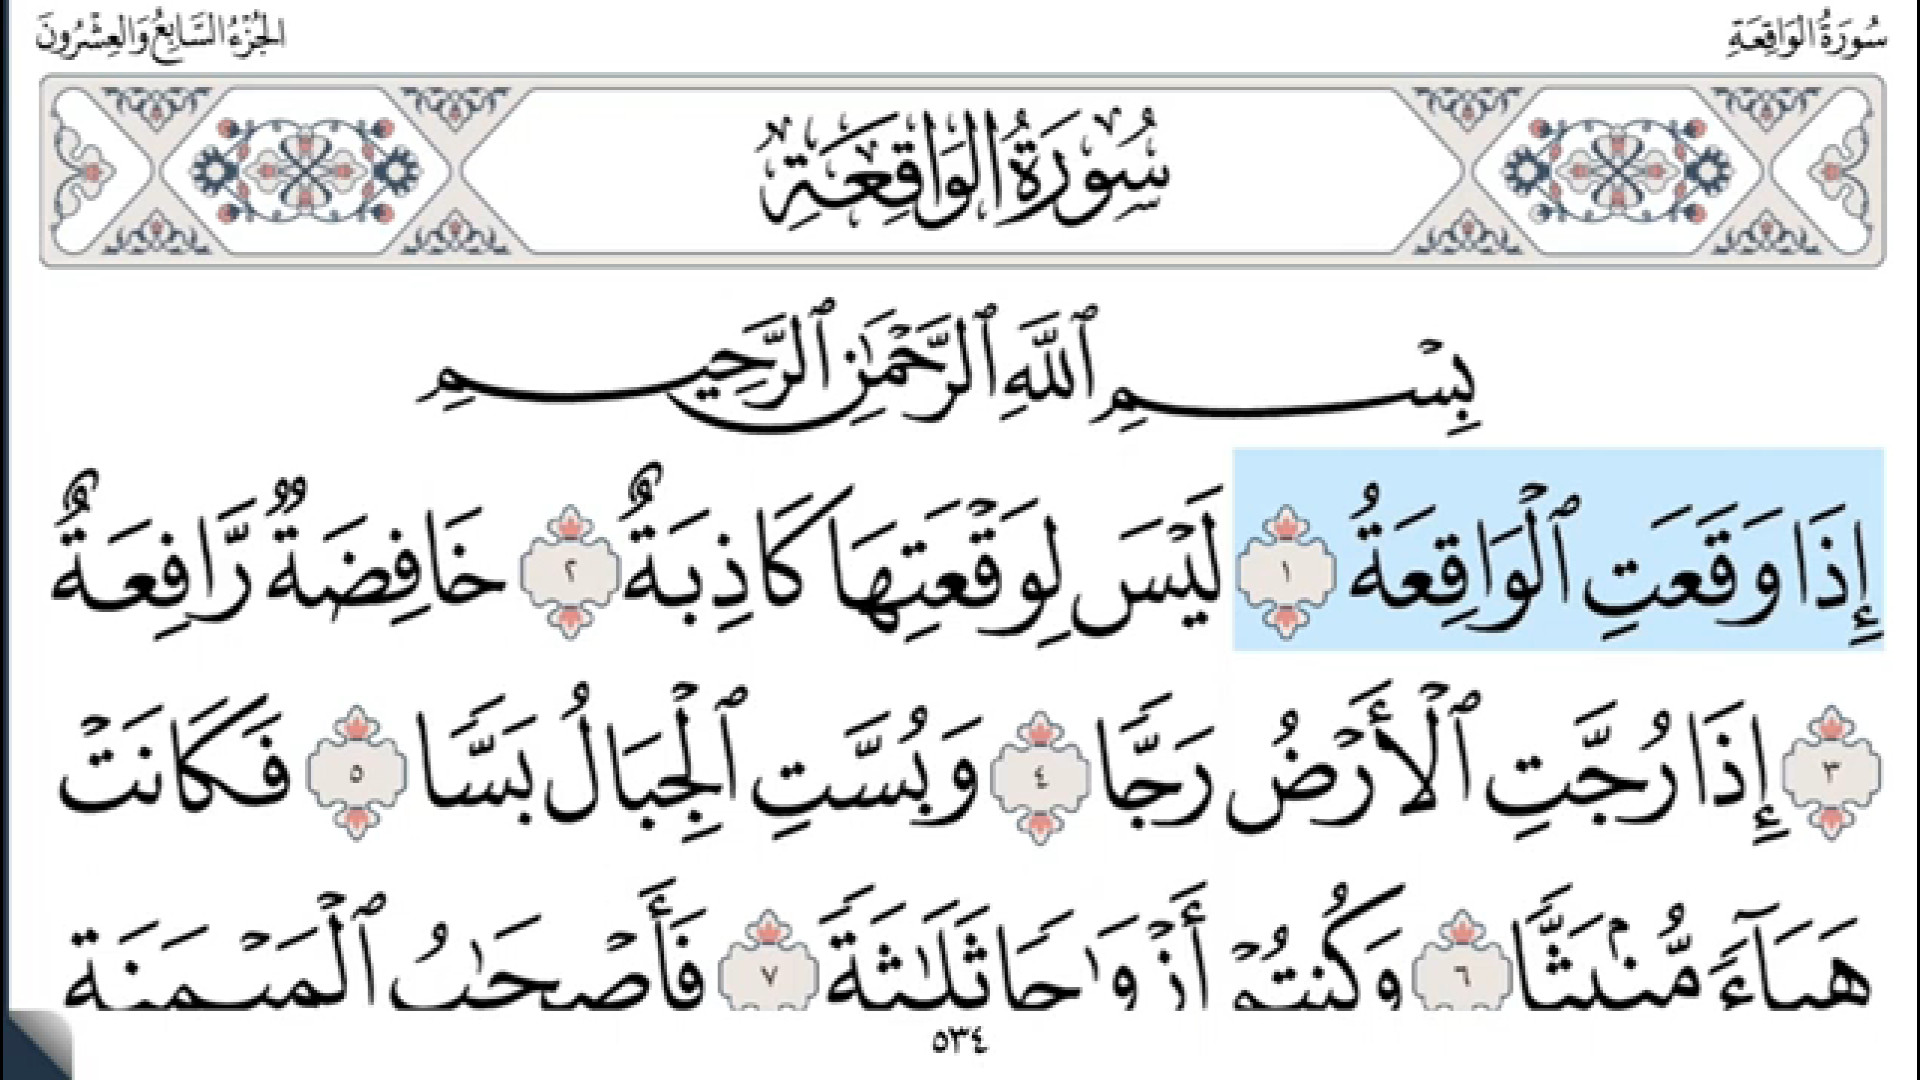 سُورَةُ الْوَاقِعَةِ
الجُزْءُ السَّابِعُ وَالعِشْرُونَ
سُورَةُ الْوَاقِعَةِ
بِسْمِ ٱللَّهِ ٱلرَّحْمَٰنِ ٱلرَّحِيمِ
إِذَا وَقَعَتِ ٱلْوَاقِعَةُ ١ لَيْسَ لِوَقْعَتِهَا كَاذِبَةٌ ٢ خَافِضَةٌ رَّافِعَةٌ
٣ إِذَا رُجَّتِ ٱلْأَرْضُ رَجًّا ٤ وَبُسَّتِ ٱلْجِبَالُ بَسًّا ٥ فَكَانَتْ
هَبَآءً مُّنۢبَثًّا ٦ وَكُنتُمْ أَزْوَٰجًا ثَلَٰثَةً ٧ فَأَصْحَٰبُ ٱلْمَيْمَنَةِ
٥٣٤